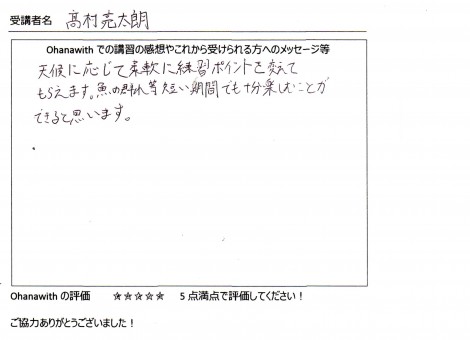 受講者名 髙村亮太朗
Ohanawith での講習の感想やこれから受けられる方へのメッセージ等
天候に応じて柔軟に練習ポイントを変えて
もらえます。魚の群れ等短い期間でも十分楽しむことが
できると思います。
Ohanawith の評価 ☆☆☆☆☆ 5 点満点で評価してください！
ご協力ありがとうございました！